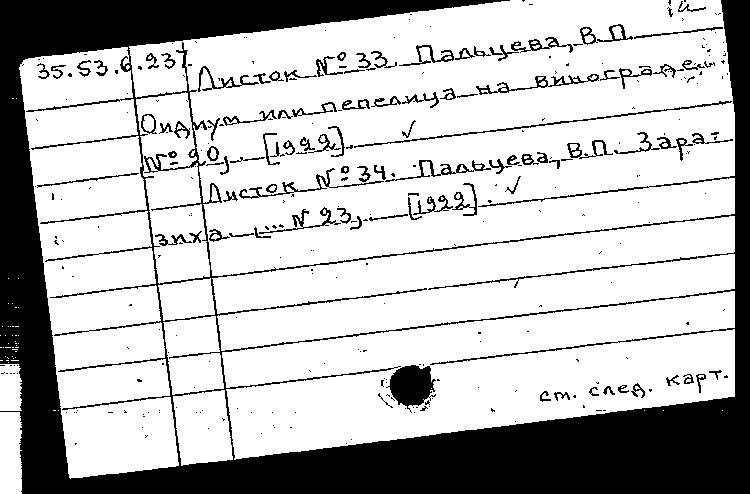 35.53.6.237.
Листок № 33. Пальцева, В.П.
Оидиум или пепелица на винограде
[№ 20, . [1922].
Листок № 34. Пальцева, В.П. Зара=
зиха. [... N 23, . [1922].
см. след. карт.